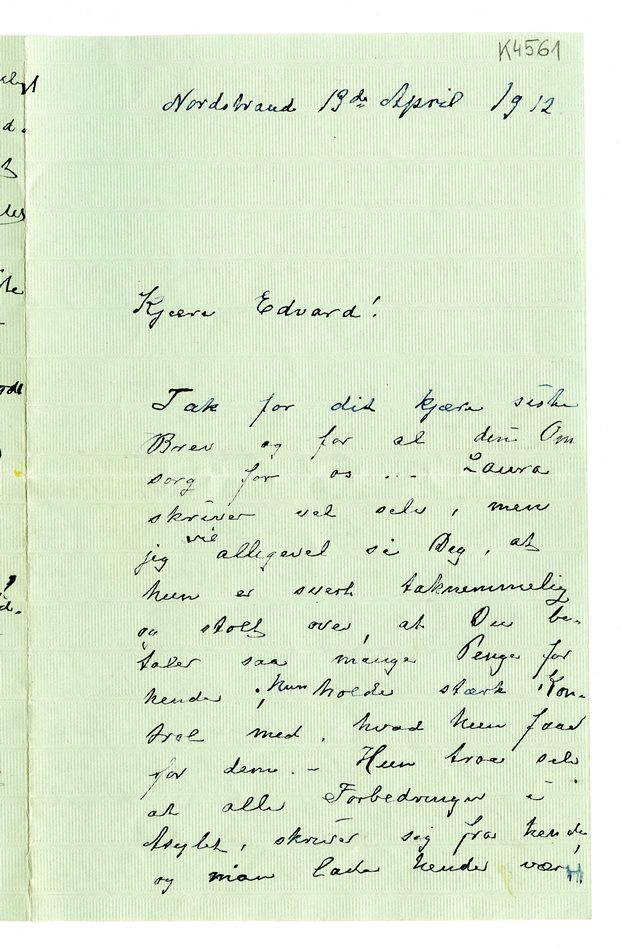 K4561
Nordstrand 19de April 1912.
Kjære Edvard!
Tak for dit kjære siste
Brev og for al din Om
sorg for os ... Laura
skriver vel selv, men
jeg vil alligevel si Deg, at
hun er svært taknemmelig
og stolt over, at Du be-
taler saa mange Penge for
hende; hun holder stærk Kon-
trol med, hvad hun faar
for dem. – Hun tror selv
at alle Forbedringer i
Asylet, skriver sig fra hende,
og man lader hende være